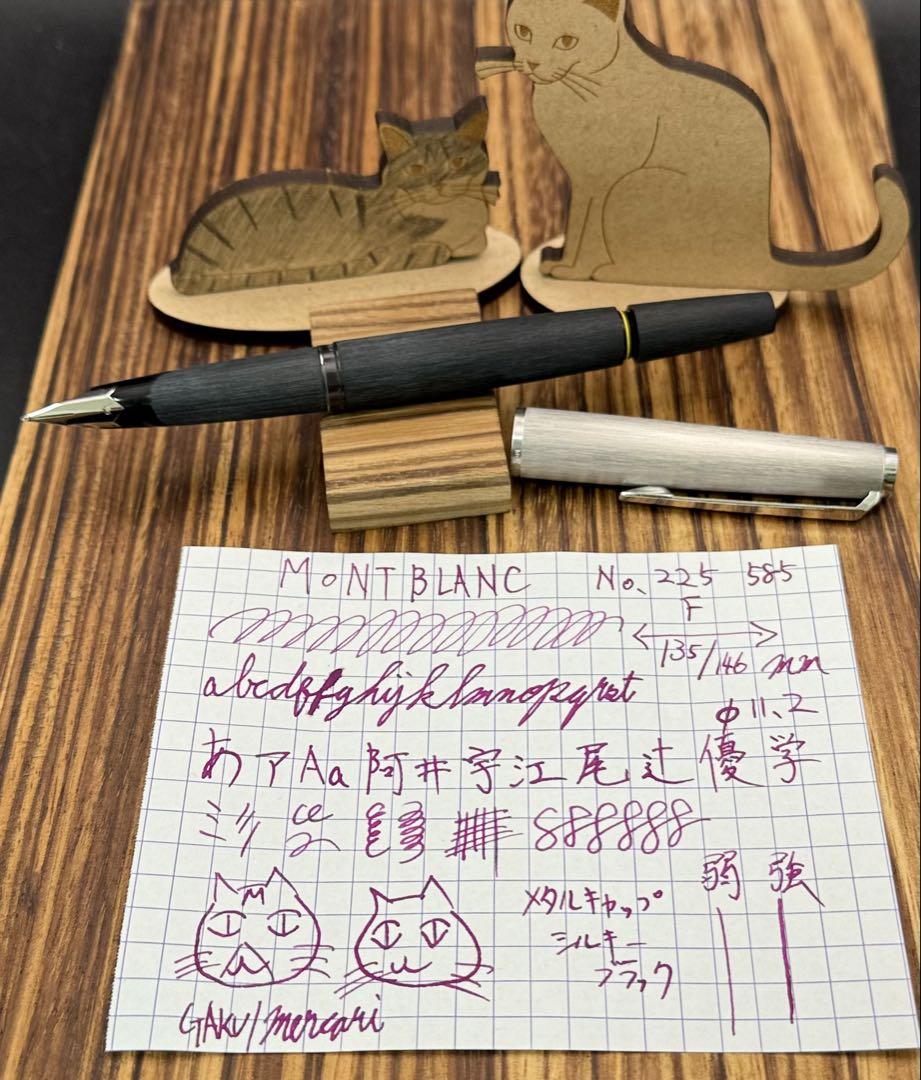 MONTBLANC No. 225 585
F
135/146 mm
abcdffghijklmnopqrst
φ11.2
あ ア A a 阿 井 宇 江 尾 辻 優 学
888888
弱 強
メタルキャップ
シルキー
ブラック
GAKU/mercari